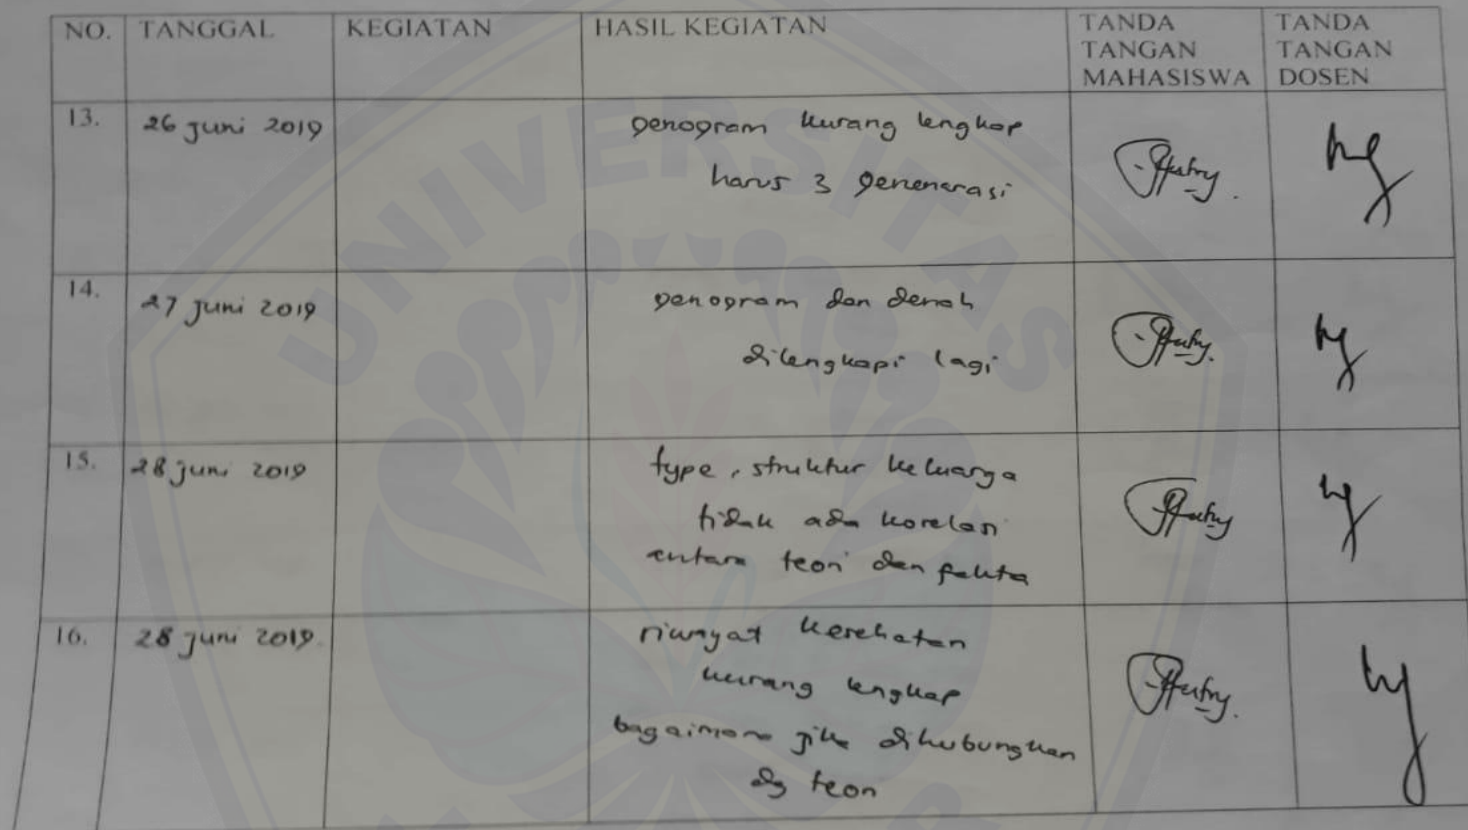 NO. TANGGAL KEGIATAN HASIL KEGIATAN TANDA TANGAN MAHASISWA TANDA TANGAN DOSEN
13. 26 juni 2019 genogram kurang lengkap
harus 3 genenerasi
14. 27 juni 2019 genogram dan denah
dilengkapi lagi
15. 28 juni 2019 type, struktur keluarga
tidak ada korelasi
antara teori dan fakta
16. 28 juni 2019. riwayat kesehatan
kurang lengkap
bagaimana jika dihubungkan
dg teori
UNIVERSITAS